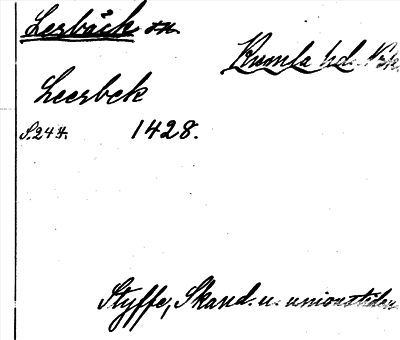 Lerbäck sn
Kumla hd. Nke
Leerbek
S. 244. 1428.
Styffe, Skand. u. unionstiden